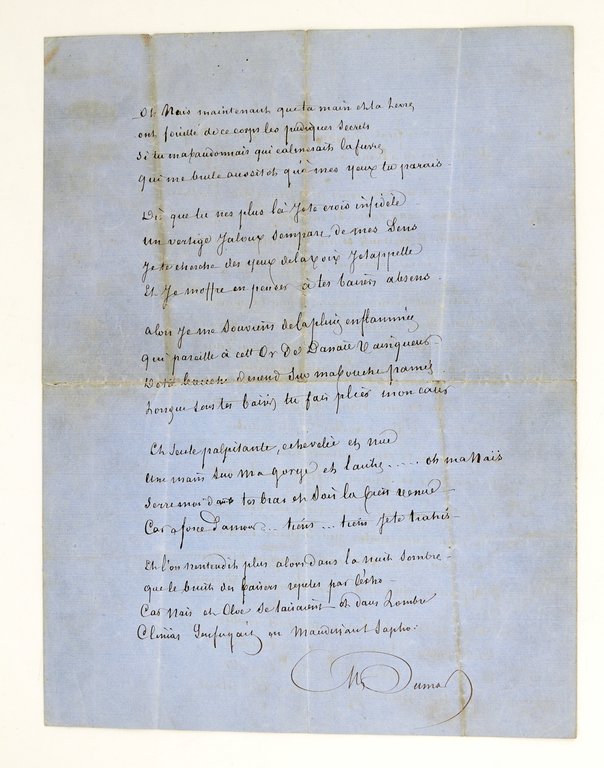 Oh Naïs maintenant que ta main et ta levre
ont fouillé de ce corps les pudiques secrets
Si tu mabandonnais qui calmerait la fievre
qui me brule aussitot qu'à mes yeux tu parais
Dès que tu nes plus là Je te crois infidèle
un vertige Jaloux sempare de mes Sens
Je te cherche des yeux de la voix Je tappelle
Et Je moffre en pensée à tes baisers absens
alors Je me Souviens de la pluie enflammée
qui pareille à cet Or de Danaë Vainqueur
De ta bouche descend Sur ma bouche pamée
Lorsque Sous tes baisers tu fais plier mon cœur
Et Seule palpitante, echevelée et nue
une main Sur ma gorge et lautre ..... oh ma Naïs
Serre moi dans tes bras et Sois la bien venue
Car a force d'amour ... tiens ... tiens Je te trahis
Et l'on nentendit plus alors dans la nuit Sombre
que le bruit des baisers repetes par l'écho
Car Naïs et Cloé Se taisaient et dans Lombre
Clinias Senfuyait en Maudissant Sapho.
Dumas